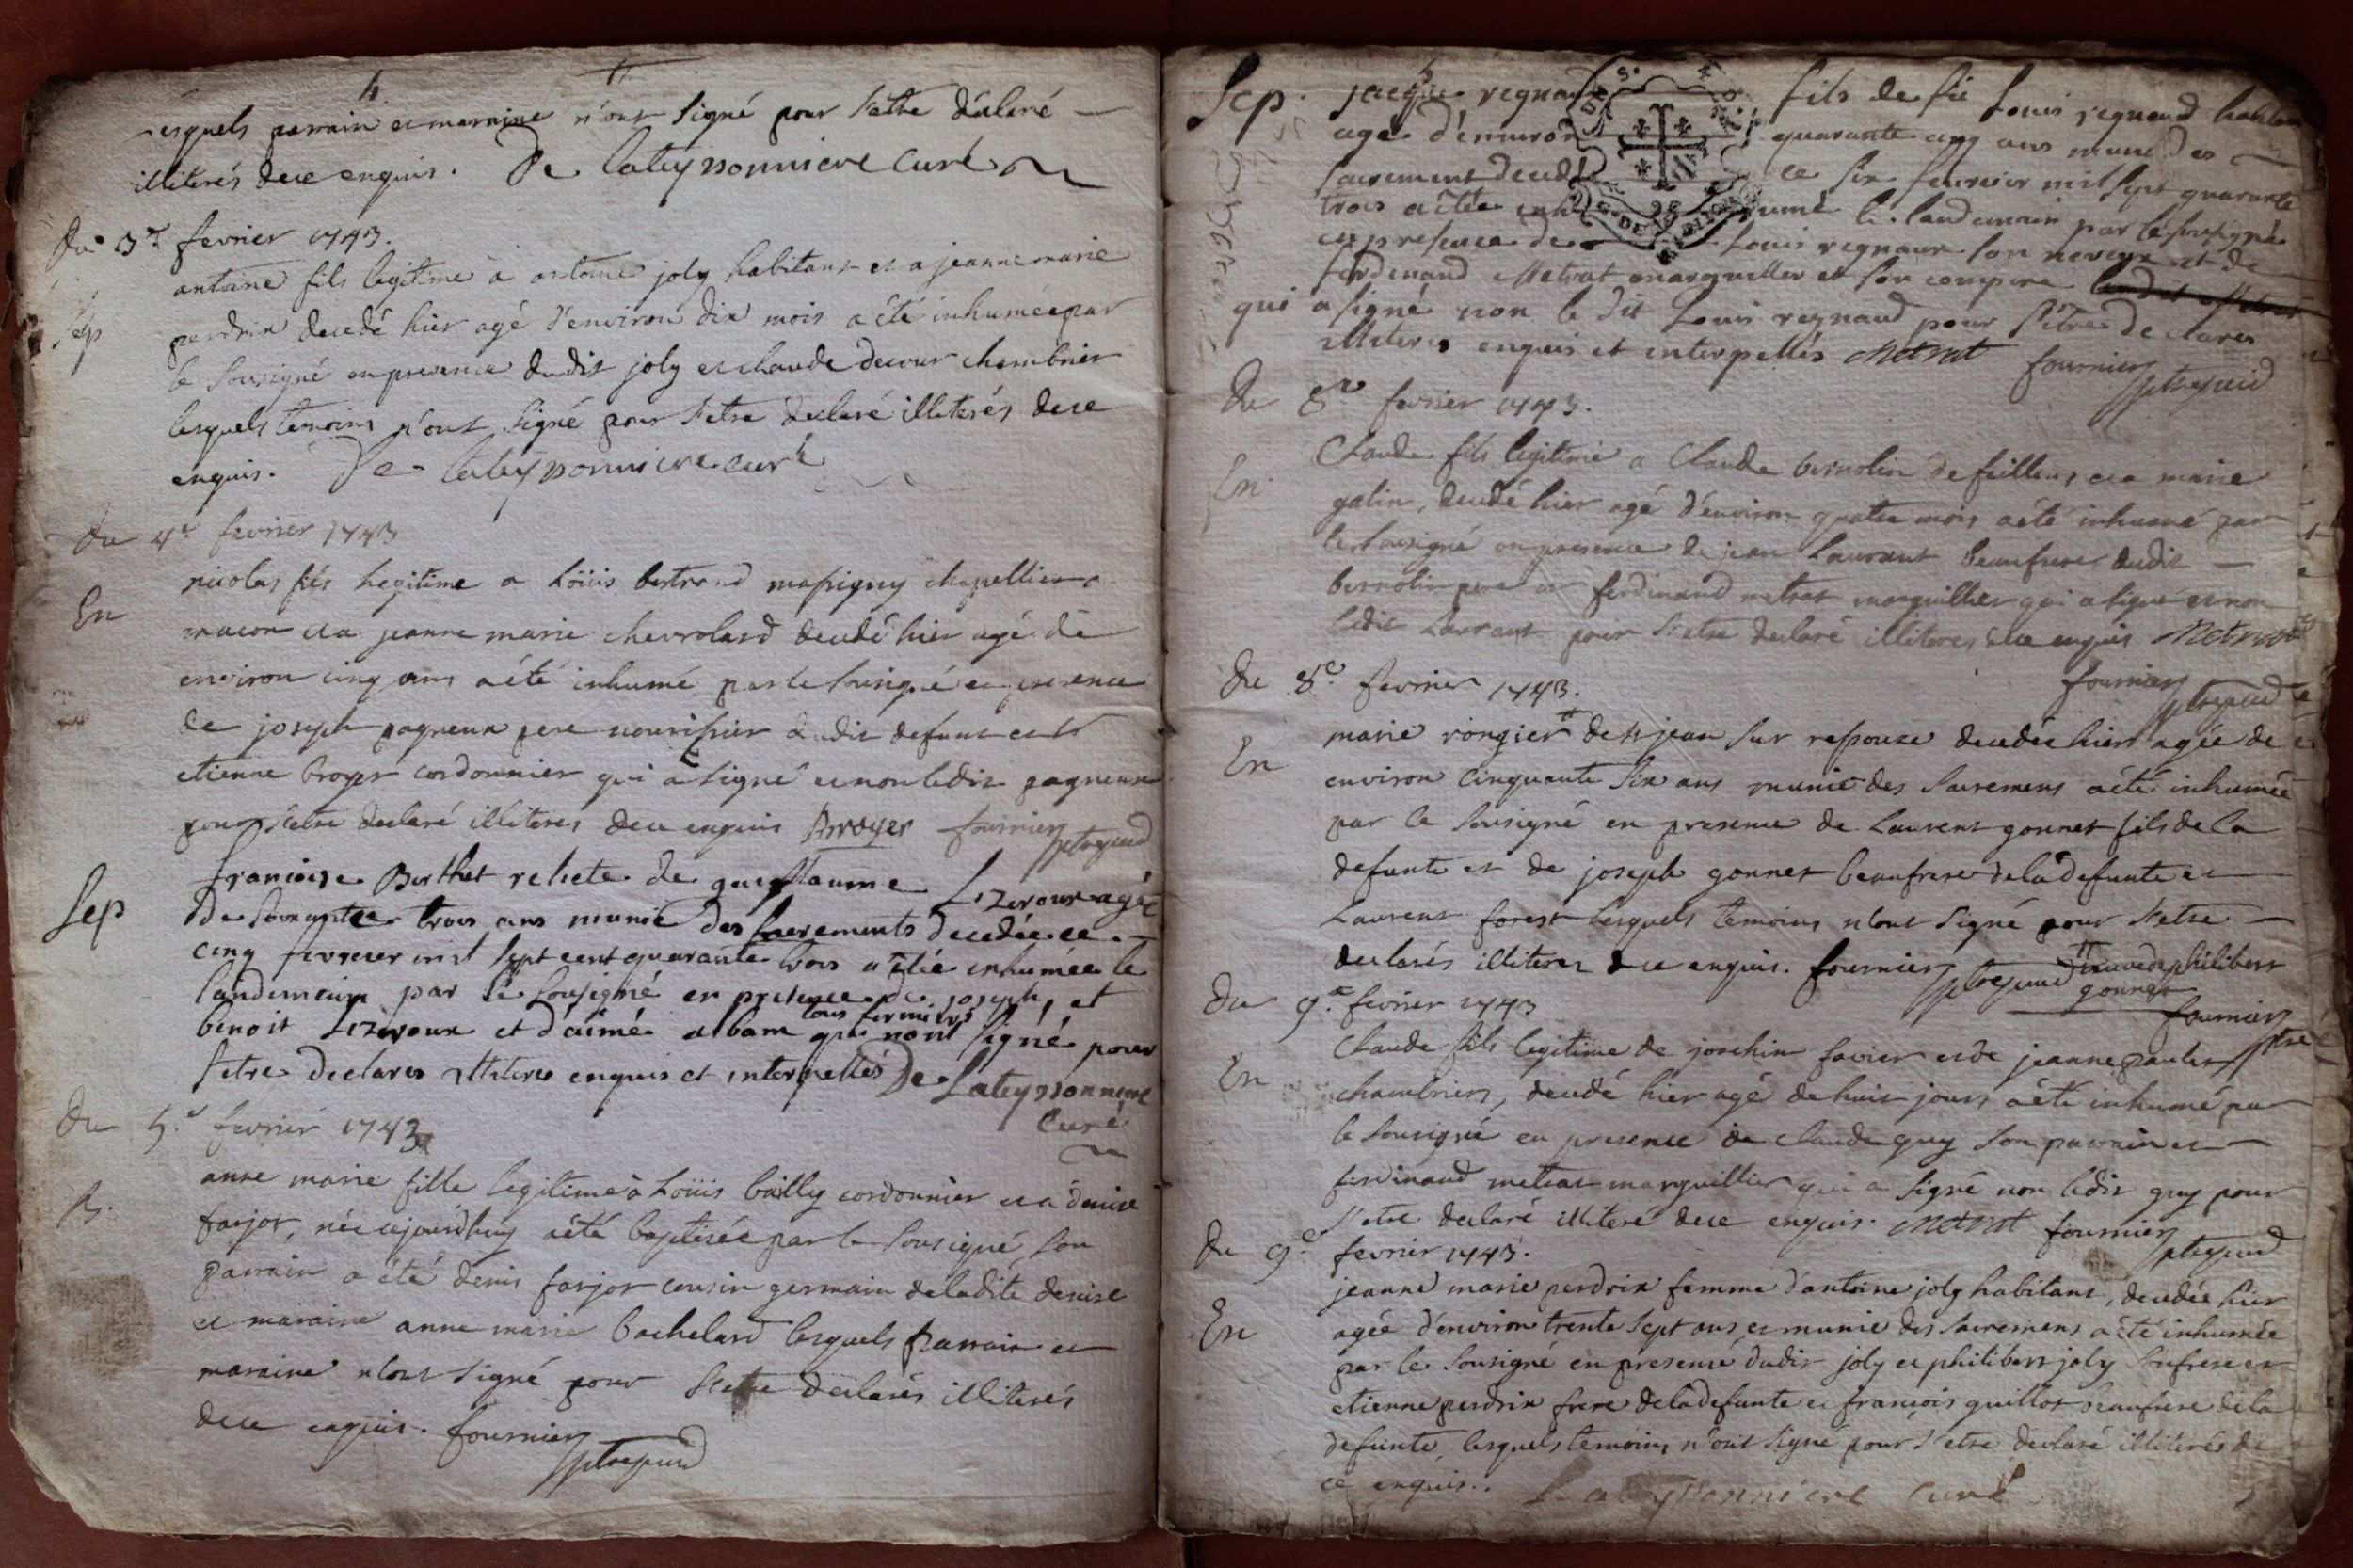 lesquels parrain et marraine n'ont signé pour s'etre déclaré
illiterés dece enquis. De Lateyssonniere curé
du 3e fevrier 1743.
Sep
antoine fils legitime à antoine joly habitant et a jeanne marie
perdrix decedé hier agé d'environ dix mois a été inhumée par
le sousigné en presence dudit joly et claude decour chambrier
lesquels temoins n'ont signé pour s'etre declaré illiterés dece
enquis. De Lateyssonniere curé
du 4e fevrier 1743
En
nicolas fils legitime a Loüis bertrand chapellier a
macon et a jeanne marie chevrolard decedé hier agé de
environ cinq ans a été inhumé par le sousigné en presence
de joseph pagneux pere nourissier dudit defunt et
etienne broyer cordonnier qui a signé et non ledit pagneux
pour s'etre declaré illiteres dece enquis Broyer fournier
Sep
francoise Berthet relicte de guillaume Lizeroux agée
de soixante trois ans munie des sacrements decedée ce
cinq fevrier mil sept cent quarante trois a étée inhumée le
landemain par le sousigné en presence de joseph, et
benoit Lizeroux et d'aimé alban tous fermiers qui n'ont signé pour
s'etre declares illiteres enquis et interpellés De Lateyssonniere
curé
du 5e fevrier 1743
B.
anne marie fille legitime à Loüis bailly cordonnier et a denise
farjot, née cejourd'huy a été baptisée par le sousigné, son
parrain a été denis farjot cousin germain deladite denise
et maraine anne marie bachelard lesquels parrain et
maraine n'ont signé pour s'etre declarés illiterés
dece enquis. fournier
Sep. jacque regnaud fils de fû Louis regnaud habitant
agé d'environ quarante cinq ans muni des
sacrement decedé ce six fevrier mil sept quarante
trois a étée inhumé le landemain par le sousigné
en presence de Louis regnaud son neveux et de
ferdinand Metrat marguiller et son compere
qui a signé non le dit Louis regnaud pour s'etre declares
illiteres enquis et interpellés Metrat fournier
du 8e fevrier 1743.
En
Claude fils legitime a Claude bernolin de feillens et a marie
galin, decedé hier agé d'environ quatre mois a été inhumé par
le sousigné en presence de jean Laurent beaufrere dudit
bernolin pere et ferdinand metrat marguillier qui a signé et non
ledit Laurent pour s'etre declaré illiteres dece enquis Metrat
fournier
du 8e fevrier 1743.
En
marie rongier de jean sur decedée hier agée de
environ cinquante six ans munie des sacremens a été inhumée
par le sousigné en presence de Laurent gonnet fils de la
defunte et de joseph gonnet beaufrere dela defunte et
Laurent forest lesquels temoins n'ont signé pour s'etre
declarés illiteres dece enquis. fournier
veuve de philibert
gonnet
fournier
du 9e fevrier 1743
En
Claude fils legitime de joachin favier et de jeanne paulet
chambriers, decedé hier agé de huit jours a été inhumé par
le sousigné en presence de claude guy son parrain et
ferdinand metrat marguillier qui a signé non ledit guy pour
s'etre declaré illiteré dece enquis. Metrat fournier
du 9e fevrier 1743.
En
jeanne marie perdrix femme d'antoine joly habitant, decedée hier
agée d'environ trente sept ans et munie des sacremens a été inhumée
par le sousigné en presence dudit joly et philibert joly son frere et
etienne perdrix frere dela defunte et francois guillot beaufrere dela
defunte, lesquels temoins n'ont signé pour s'etre declaré illiterés de
ce enquis. Lateyssonniere curé